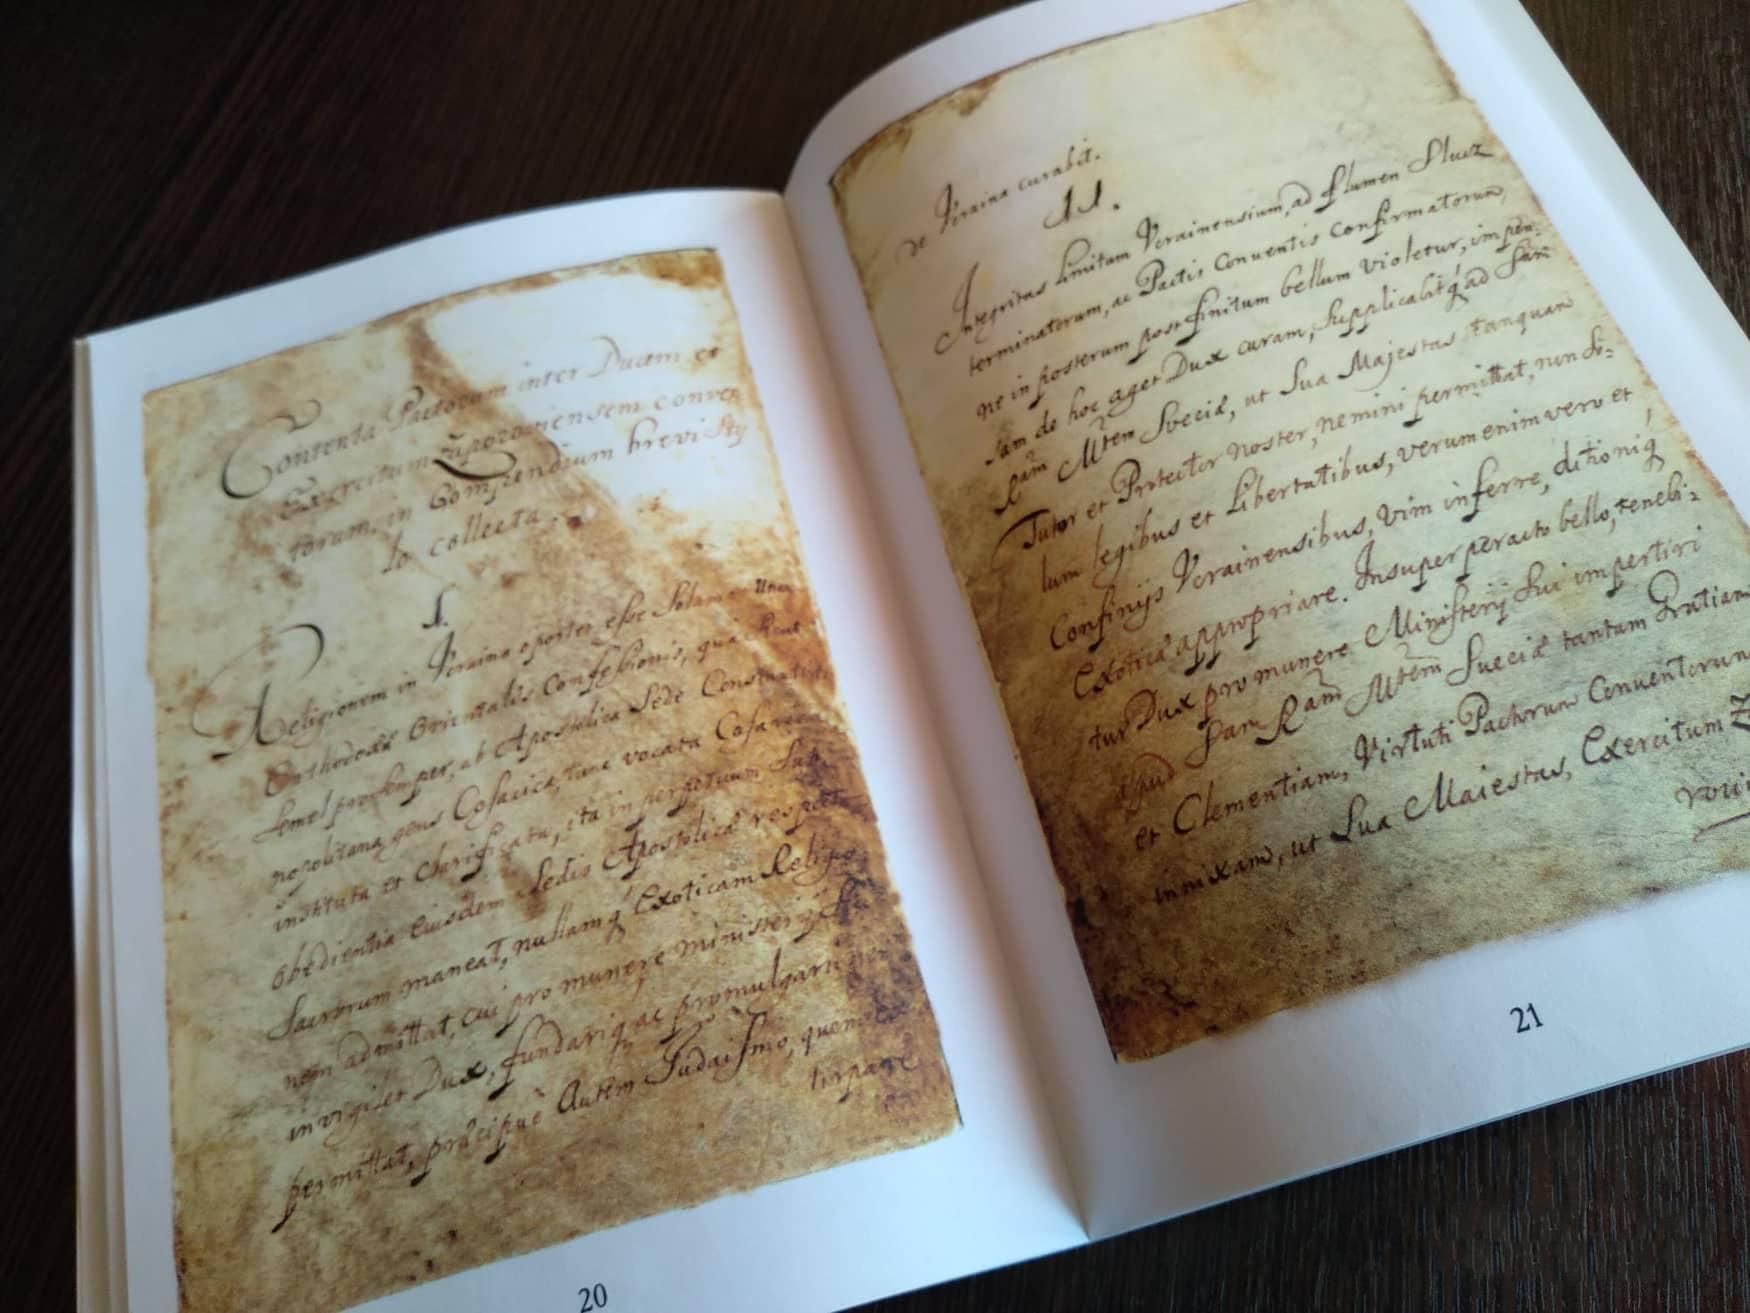 Contenta Pactorum inter Ducem et
Exercitum Zaporoviensem conven
torum, in Compendium brevi sty
lo collecta.
1.
Religionem in Vcraina oportet esse Solam Unam
Orthodoxæ Orientalis Confessionis, qua
Semel pro Semper, ab Apostolica Sede Constanti
nopolitana, gens Cosacica, tunc vocata
instituta et Clarificata, ita in perpetuum Sub
obedientia Eiusdem Sedis Apostolicæ respectu
Sacrorum maneat, nullamq́ Exoticam Religio
nem admittat, cui pro munere ministerij Sui
invigilet Dux, fundariq́ ac promulgari non
permittat, præcipuè Autem Judaismo, quem
tirpare
20
de Vcraina curabit.
11.
Integritas limitum Vcrainensium, ad flumen Sluez
terminatorum, ac Pactis Conventis Confirmatorum,
ne in posterum post finitum bellum violetur, impen:
sam de hoc aget Dux curam, Supplicabitq́ ad Sam̃
Ram̃ Mtem Sveciæ, ut Sua Majestas tanquam
Tutor et Protector noster, nemini permittat, non So:
lum legibus et Libertatibus, verumenimvero et
Confinijs Vcrainensibus, vim inferre, ditioniq́
Exoticæ appropriare. Insuper peracto bello, tenebi:
tur Dux pro munere Ministerij Sui impertiri
apud Sam Ram̃ Mtem̃ Sueciæ tantam Gratiam
et Clementiam, Virtuti Pactorum Conventorum
innixam, ut Sua Maiestas, Exercitum
21